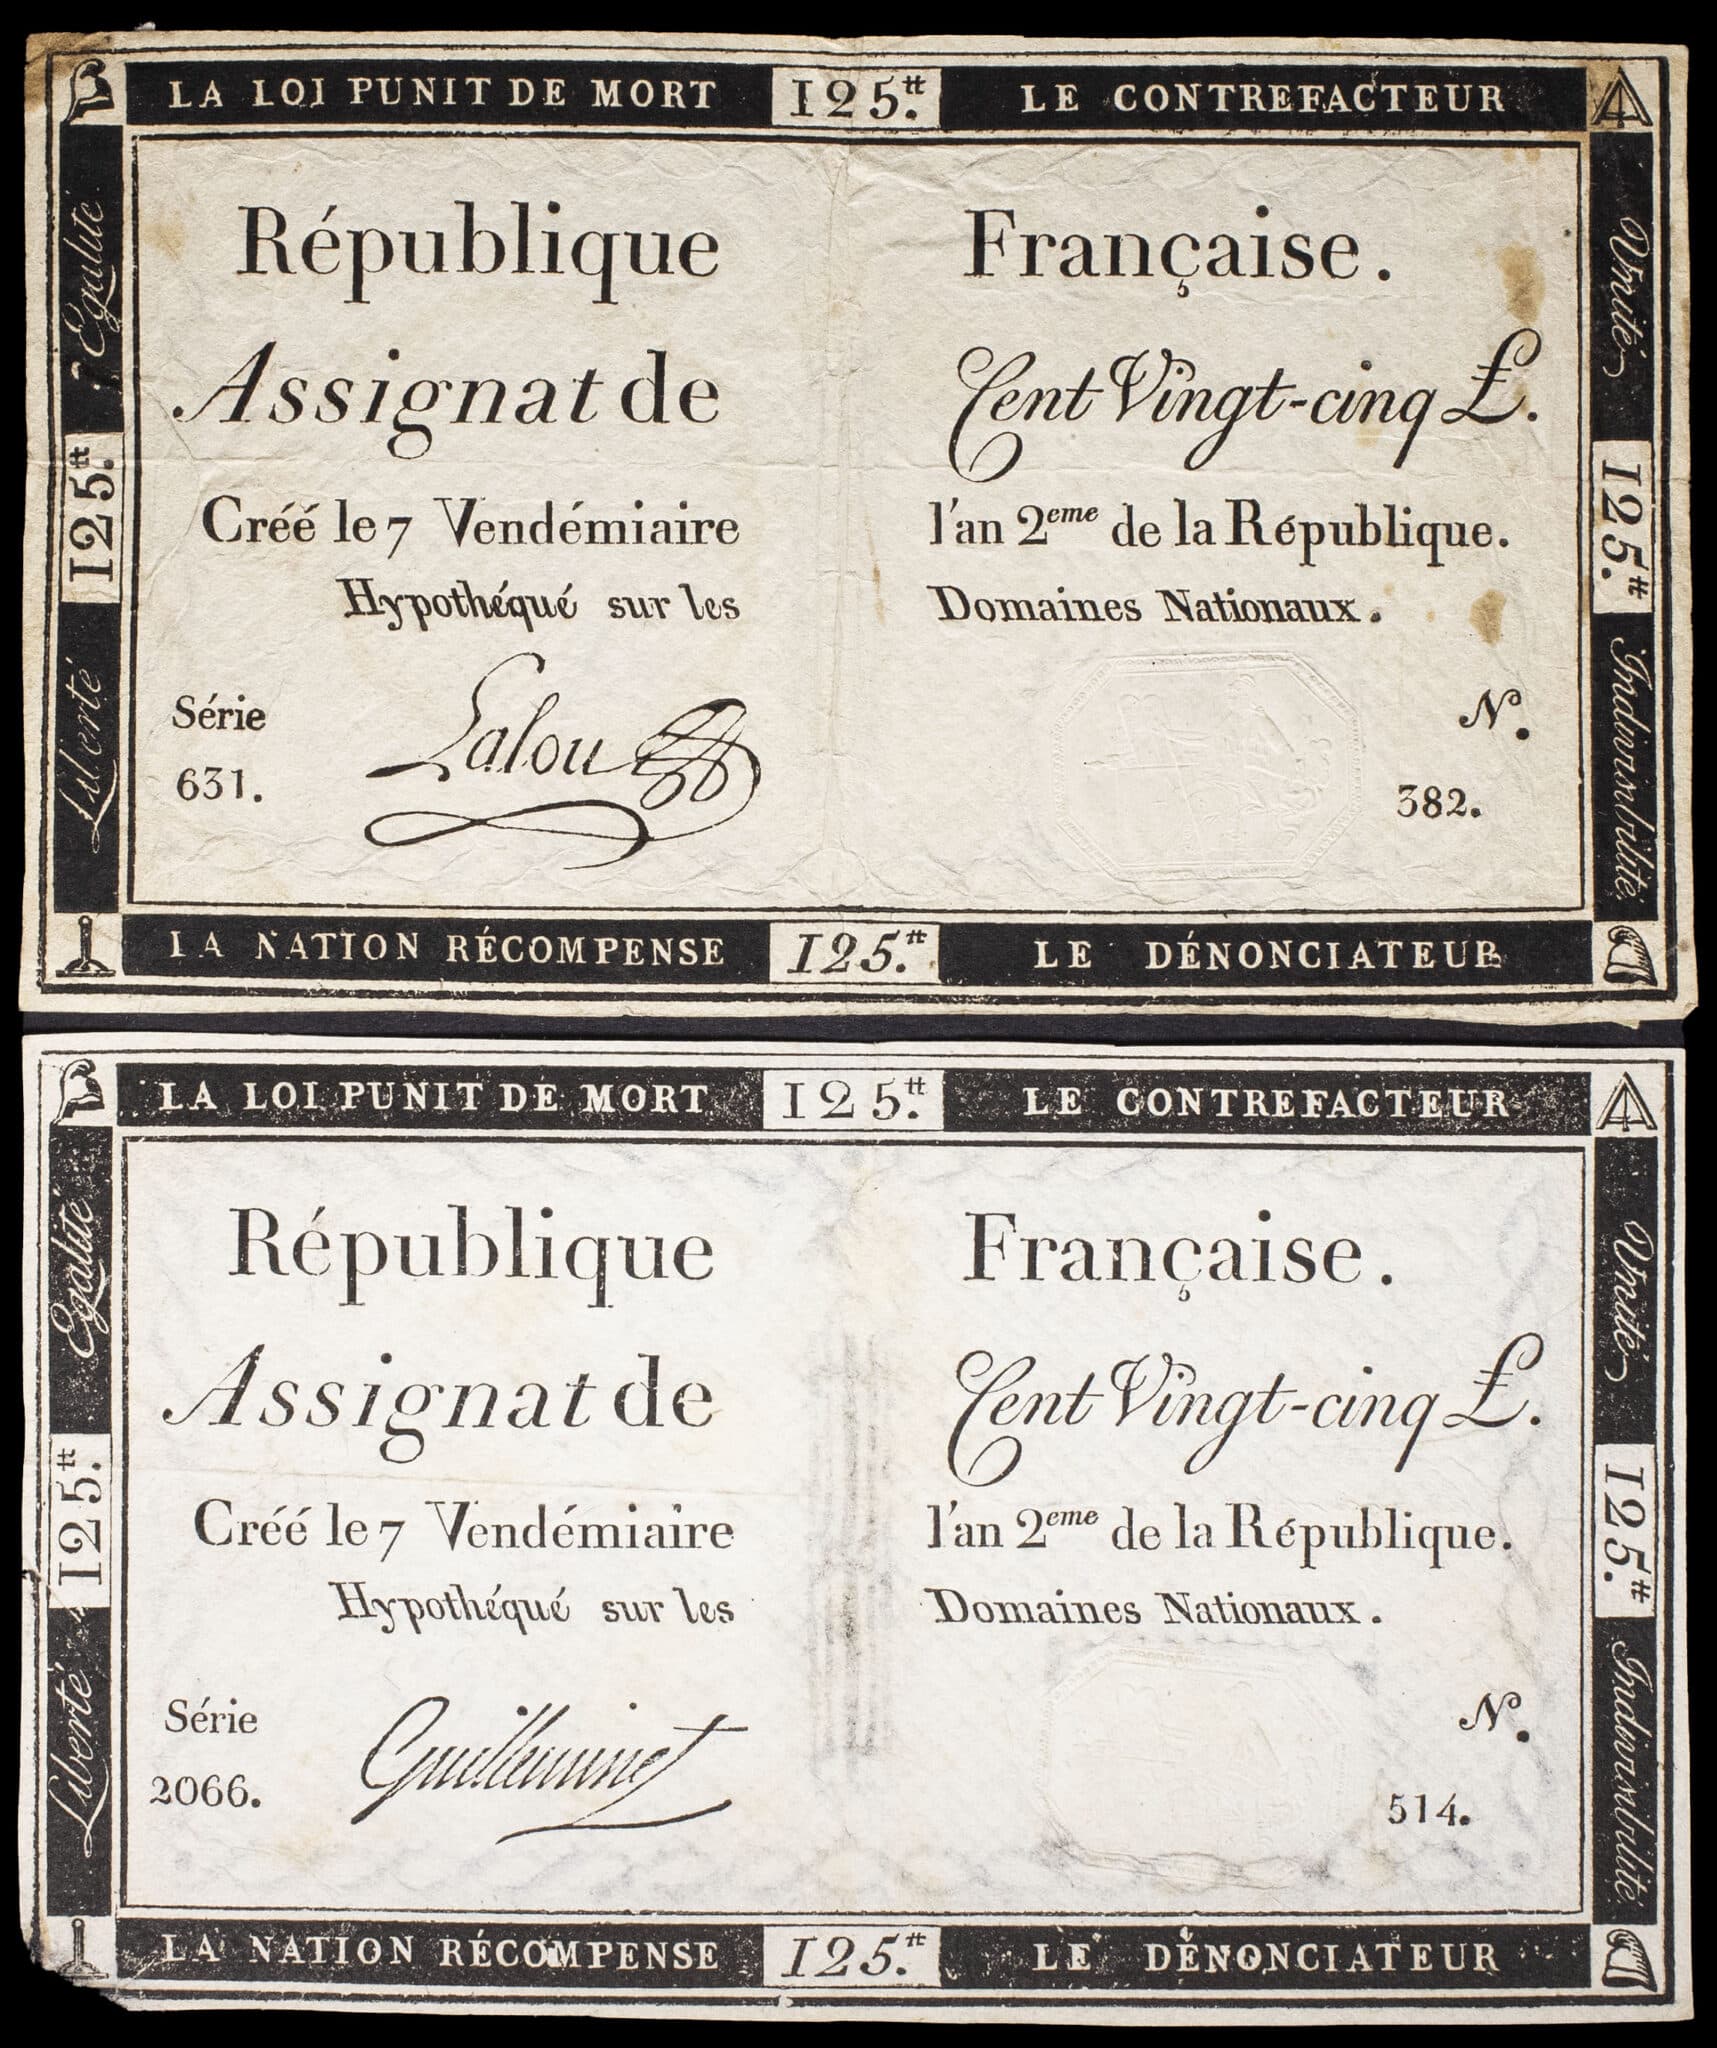 LA LOI PUNIT DE MORT 125.tt LE CONTREFACTEUR
République Française.
Assignat de Cent Vingt-cinq £.
Créé le 7 Vendémiaire l'an 2eme de la République.
Hypothéqué sur les Domaines Nationaux.
Série Lalou N.o
631. 382.
LA NATION RÉCOMPENSE 125.tt LE DÉNONCIATEUR
Liberté 125.tt Egalité
Unité 125.tt Indivisibilité
LA LOI PUNIT DE MORT 125.tt LE CONTREFACTEUR
République Française.
Assignat de Cent Vingt-cinq £.
Créé le 7 Vendémiaire l'an 2eme de la République.
Hypothéqué sur les Domaines Nationaux.
Série Guilleminet N.o
2066. 514.
LA NATION RÉCOMPENSE 125.tt LE DÉNONCIATEUR
Liberté 125.tt Egalité
Unité 125.tt Indivisibilité